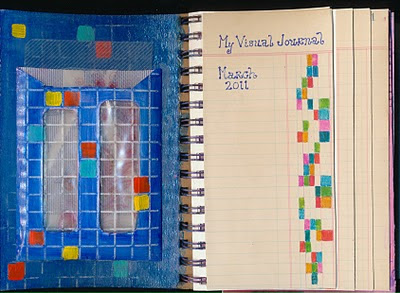 My Visual Journal
March
2011